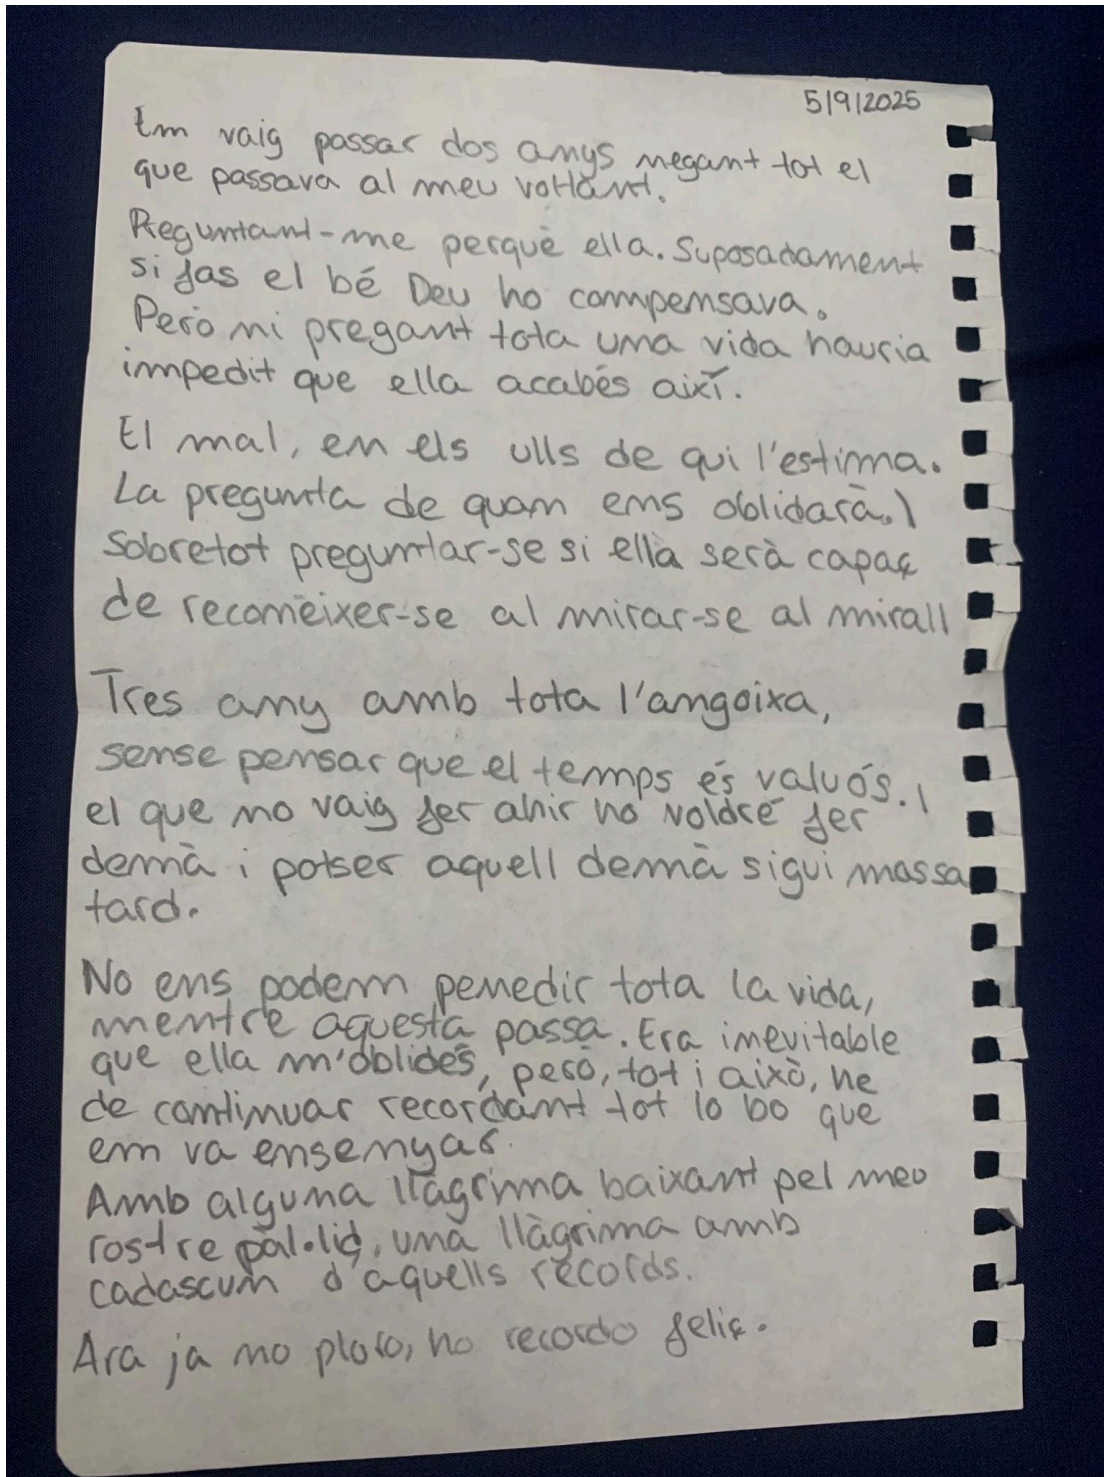 5/9/2025
Em vaig passar dos anys negant tot el
que passava al meu voltant.
Preguntant-me perquè ella. Suposadament
si fas el bé Deu ho compensava.
Però ni pregant tota una vida hauria
impedit que ella acabés així.
El mal, en els ulls de qui l'estima.
La pregunta de quan ens oblidarà. I
sobretot preguntar-se si ella serà capaç
de reconèixer-se al mirar-se al mirall
Tres any amb tota l'angoixa,
sense pensar que el temps és valuós. I
el que no vaig fer ahir ho voldré fer
demà i potser aquell demà sigui massa
tard.
No ens podem penedir tota la vida,
mentre aquesta passa. Era inevitable
que ella m'oblidés, però, tot i això, he
de continuar recordant tot lo bo que
em va ensenyar.
Amb alguna llàgrima baixant pel meu
rostre pàl·lid, una llàgrima amb
cadascun d'aquells records.
Ara ja no ploro, ho recordo feliç.